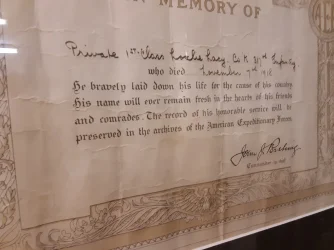 IN MEMORY OF
Private 1st Class
who died November 7th 1918
He bravely laid down his life for the cause of his country.
His name will ever remain fresh in the hearts of his friends
and comrades. The record of his honorable service will be
preserved in the archives of the American Expeditionary Forces.
John J. Pershing
Commander in Chief